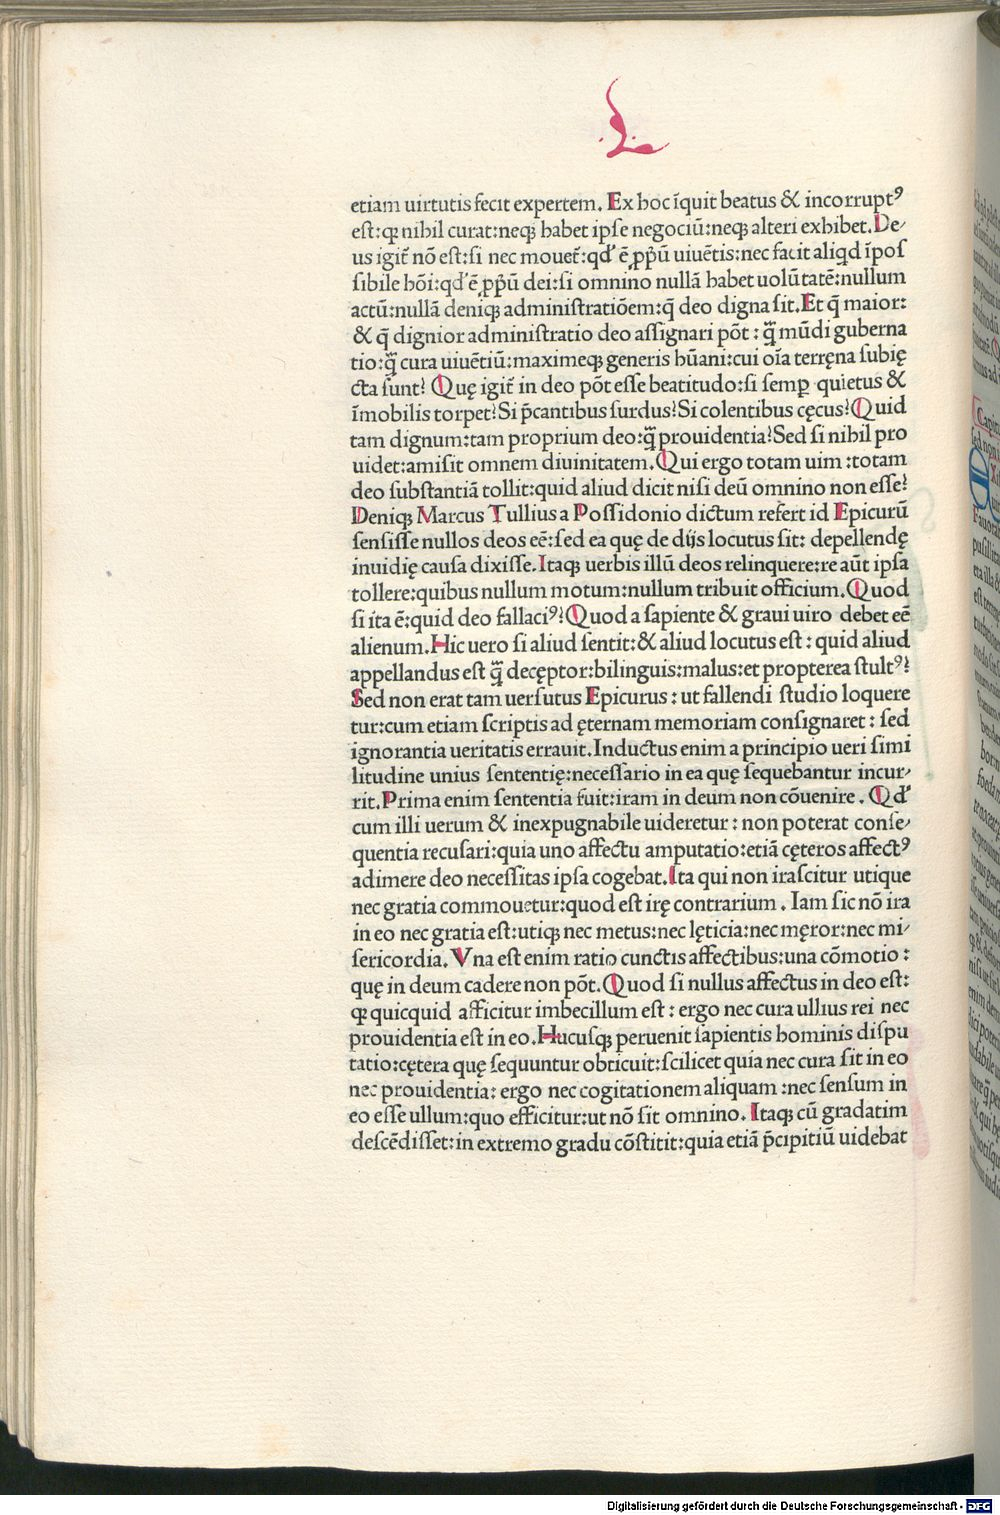 L
etiam uirtutis fecit expertem. Ex hoc īquit beatus & incorruptꝰ
est:qꝫ nihil curat:neqꝫ habet ipse negociū:neqꝫ alteri exhibet. De-
us igit̄ nō est:si nec mouet̄:qd' ē ꝓp̄ū uiuētis:nec facit aliqd īpos
sibile hōi:qd' ē ꝓp̄ū dei:si omnino nullā habet uolūtatē:nullum
actū:nullā deniqꝫ administratiōem:q̄ deo digna sit. Et q̄ maior:
& q̄ dignior administratio deo assignari pōt : q̄ꝫ mūdi guberna
tio:q̄ꝫ cura uiuētiū:maximeqꝫ generis hūani:cui oīa terręna subię
cta sunt? Quę igit̄ in deo pōt esse beatitudo:si semꝑ quietus &
īmobilis torpet?Si p̄cantibus surdus?Si colentibus cęcus?Quid
tam dignum:tam proprium deo:q̄ꝫ prouidentia?Sed si nihil pro
uidet:amisit omnem diuinitatem. Qui ergo totam uim :totam
deo substantiā tollit:quid aliud dicit nisi deū omnino non esse?
Deniqꝫ Marcus Tullius a Possidonio dictum refert id Epicurū
sensisse nullos deos eē:sed ea quę de dijs locutus sit: depellendę
inuidię causa dixisse. Itaqꝫ uerbis illū deos relinquere:re aūt ipsa
tollere:quibus nullum motum:nullum tribuit officium. Quod
si ita ē:quid deo fallaciꝰ?Quod a sapiente & graui uiro debet eē
alienum. Hic uero si aliud sentit:& aliud locutus est : quid aliud
appellandus est q̄ꝫ decęptor:bilinguis:malus:et propterea stultꝰ?
Sed non erat tam uersutus Epicurus : ut fallendi studio loquere
tur:cum etiam scriptis ad ęternam memoriam consignaret : sed
ignorantia ueritatis errauit. Inductus enim a principio ueri simi
litudine unius sententię:necessario in ea quę sequebantur incur-
rit. Prima enim sententia fuit:iram in deum non cōuenire . Qd'
cum illi uerum & inexpugnabile uideretur : non poterat conse-
quentia recusari:quia uno affectu amputatio:etiā cęteros affectꝰ
adimere deo necessitas ipsa cogebat. Ita qui non irascitur utique
nec gratia commouetur:quod est irę contrarium . Iam sic nō ira
in eo nec gratia est:utiqꝫ nec metus:nec lęticia:nec męror:nec mi-
sericordia. Vna est enim ratio cunctis affectibus:una cōmotio :
quę in deum cadere non pōt. Quod si nullus affectus in deo est:
qꝫ quicquid afficitur imbecillum est : ergo nec cura ullius rei nec
prouidentia est in eo. Hucusqꝫ peruenit sapientis hominis dispu
tatio:cętera quę sequuntur obticuit:scilicet quia nec cura sit in eo
nec prouidentia: ergo nec cogitationem aliquam :nec sensum in
eo esse ullum:quo efficitur:ut nō sit omnino. Itaqꝫ cū gradatim
descēdisset:in extremo gradu cōstitit:quia etiā p̄cipitiū uidebat
Digitalisierung gefördert durch die Deutsche Forschungsgemeinschaft - DFG